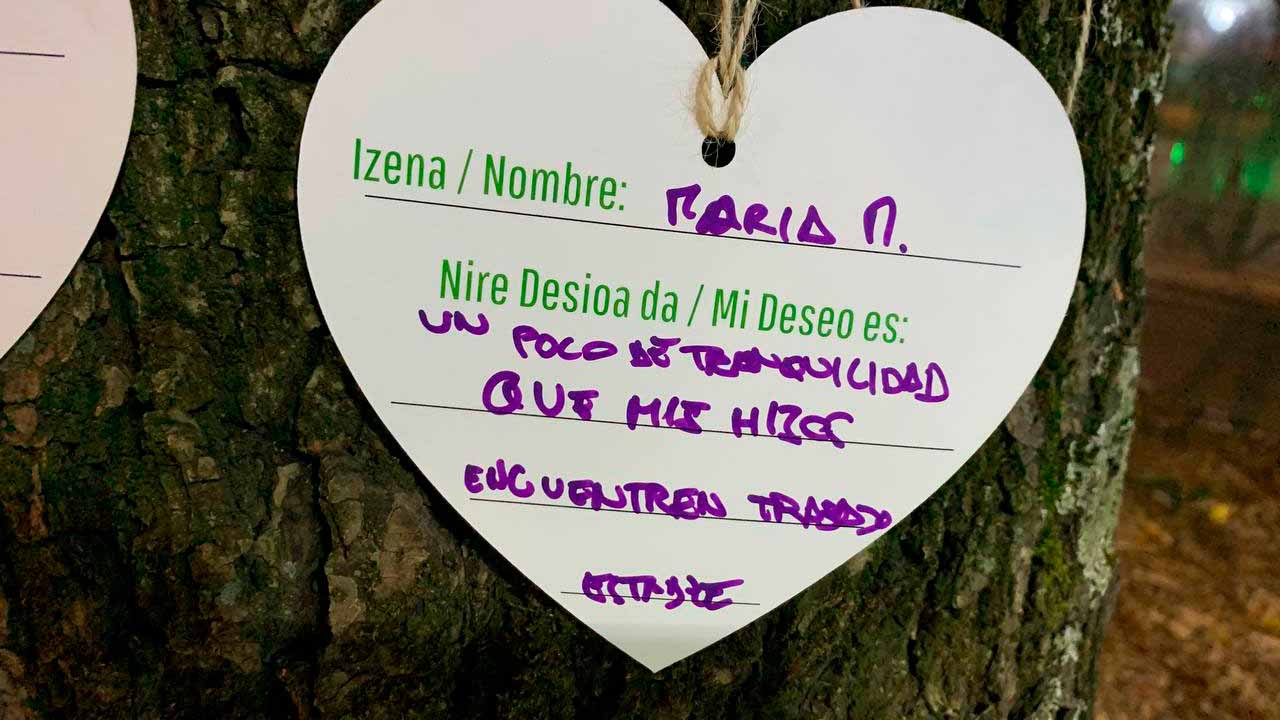 Izena / Nombre: MARIA M.
Nire Desioa da / Mi Deseo es:
UN POCO DE TRANQUILIDAD
QUE MIS HIJOS
ENCUENTREN TRABAJO
ESTABLE